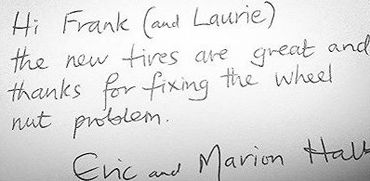 Hi Frank (and Laurie)
the new tires are great and
thanks for fixing the wheel
nut problem.
Eric and Marion